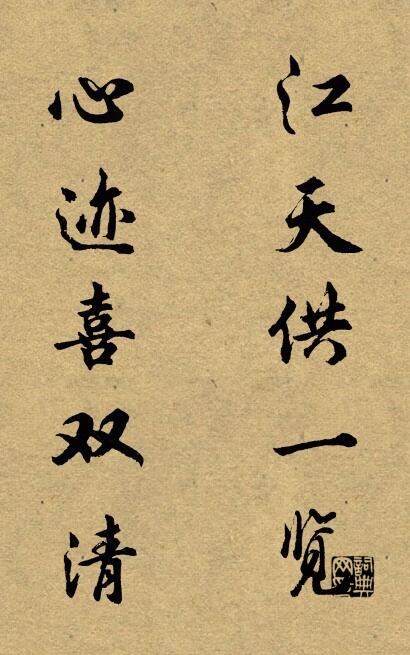 江天供一览
心迹喜双清
词典网